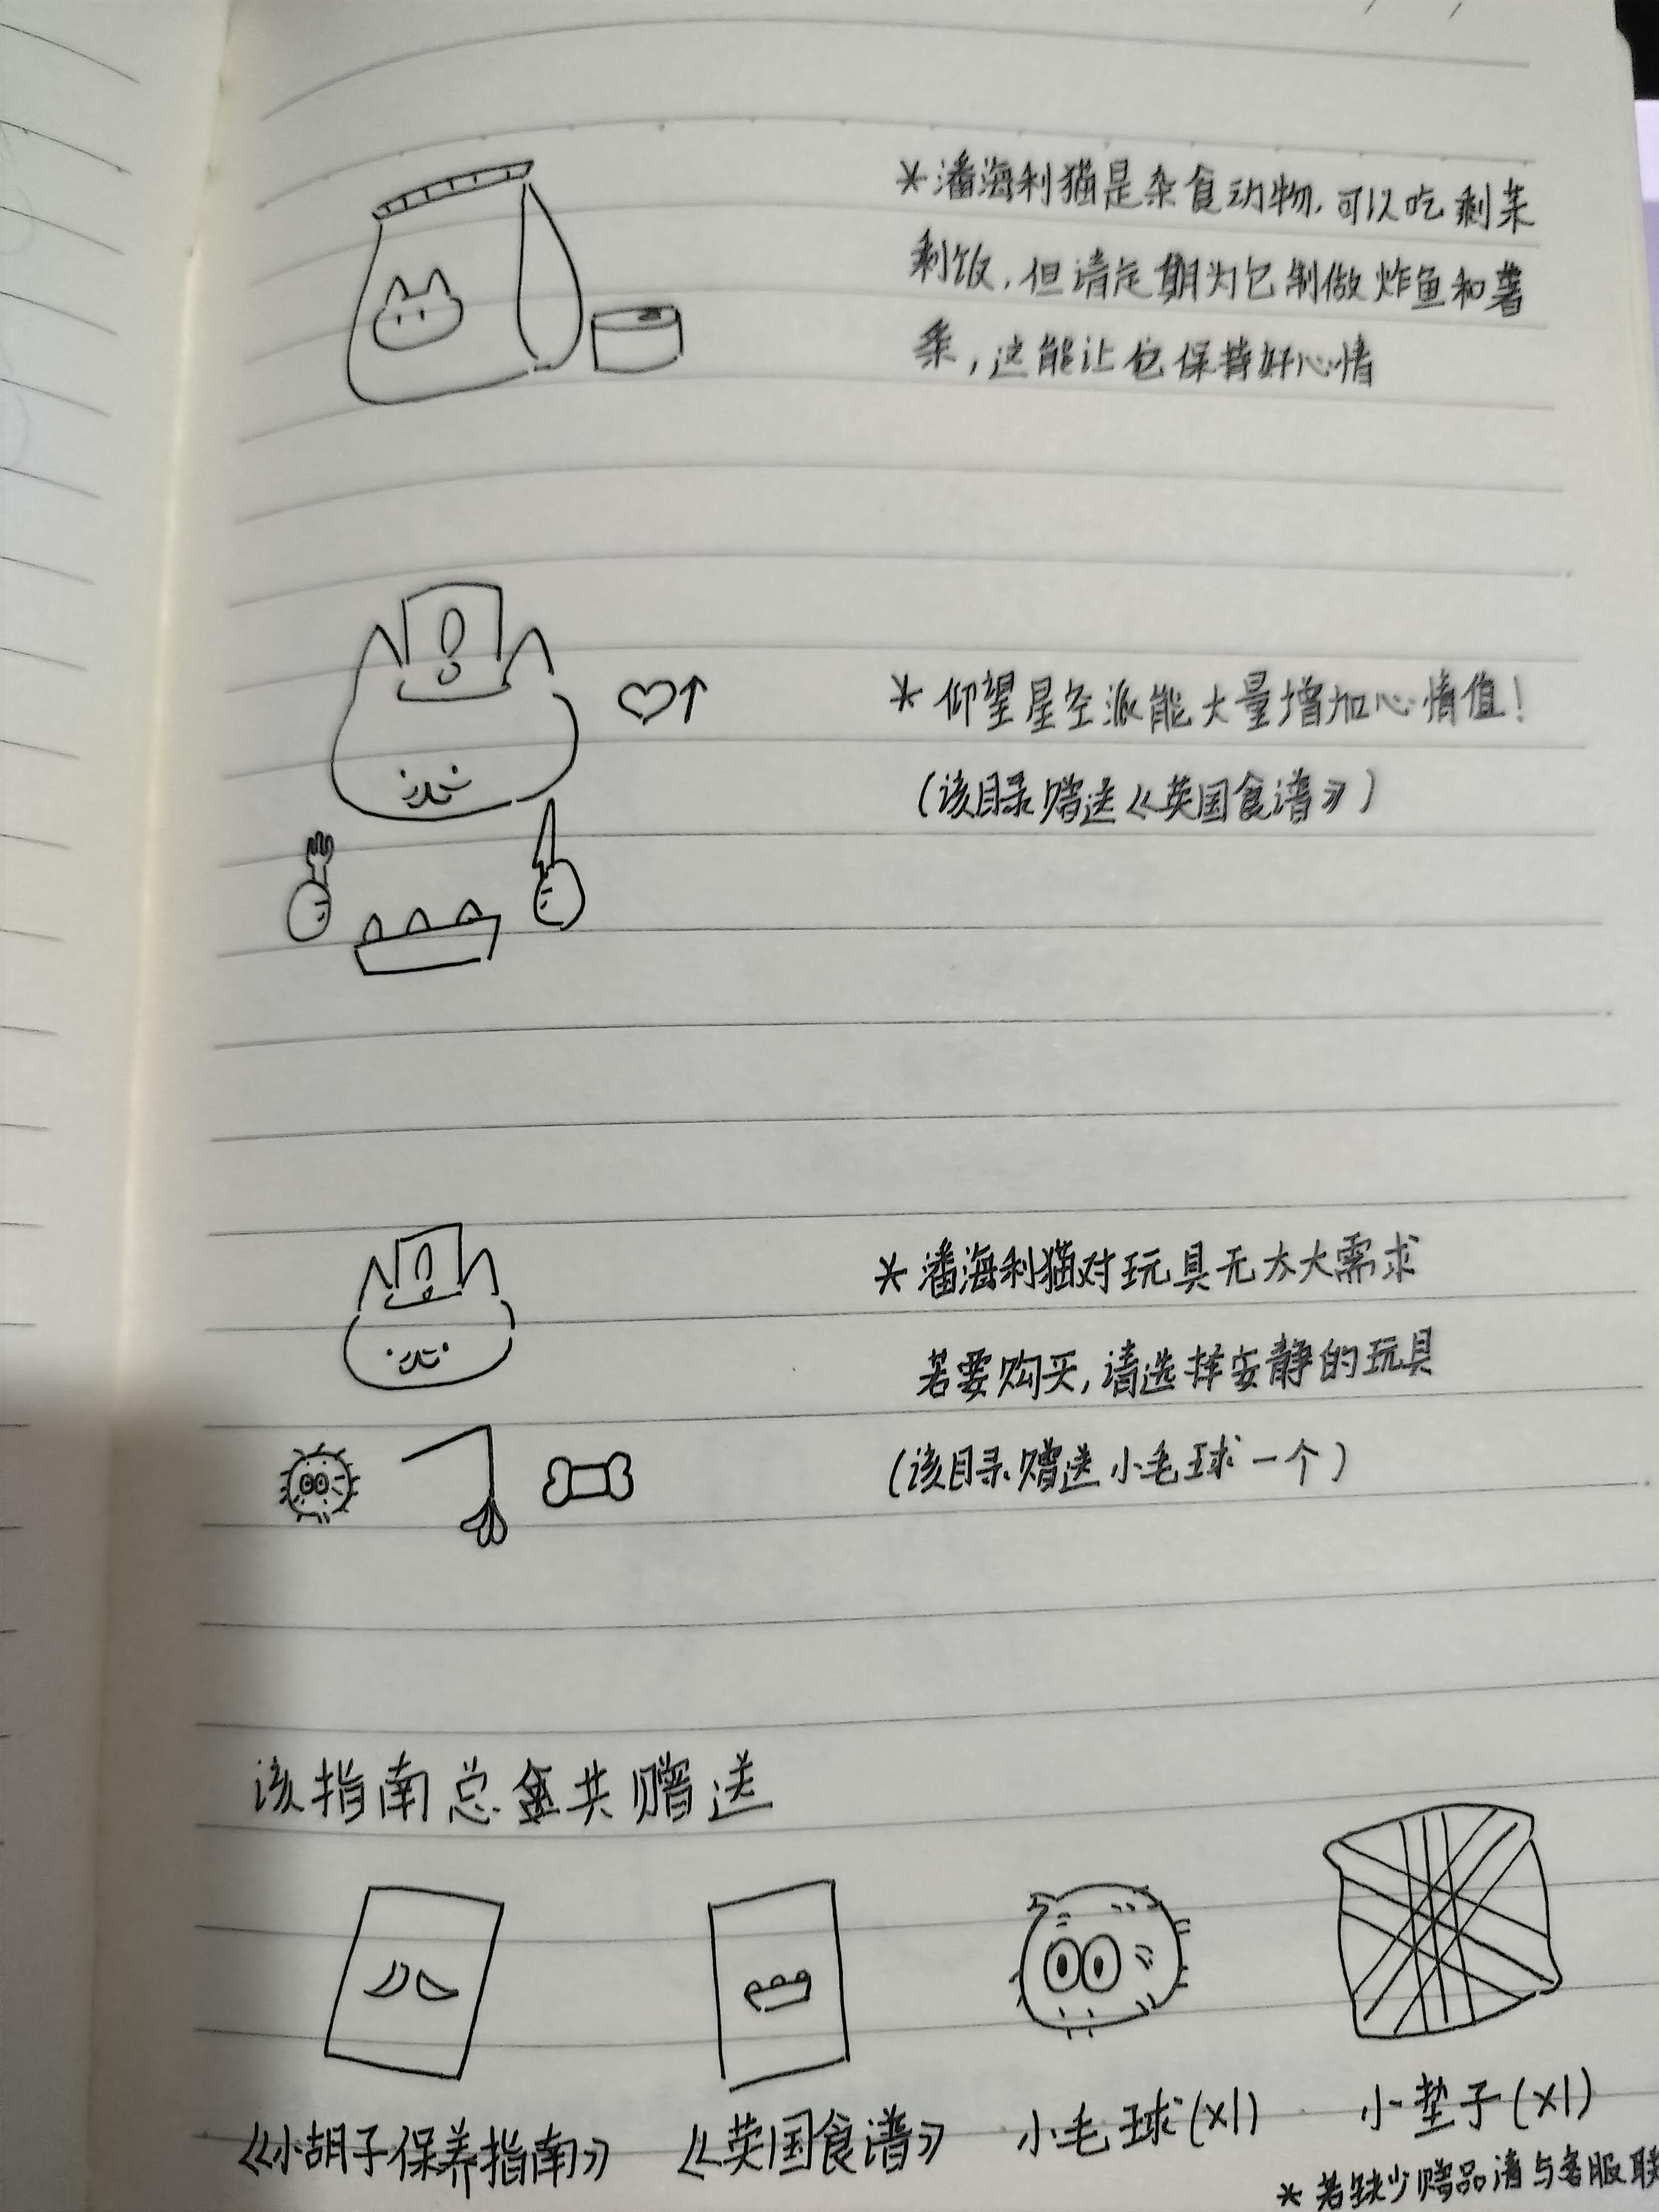 *潘海利猫是杂食动物,可以吃剩菜
剩饭,但请定期为它制做炸鱼和薯
条,这能让它保持好心情
*仰望星空派能大量增加心情值!
(该目录赠送《英国食谱》)
*潘海利猫对玩具无太大需求
若要购买,请选择安静的玩具
(该目录赠送小毛球一个)
该指南总共赠送
《小胡子保养指南》 《英国食谱》 小毛球(x1) 小垫子(x1)
*若缺少赠品请与客服联